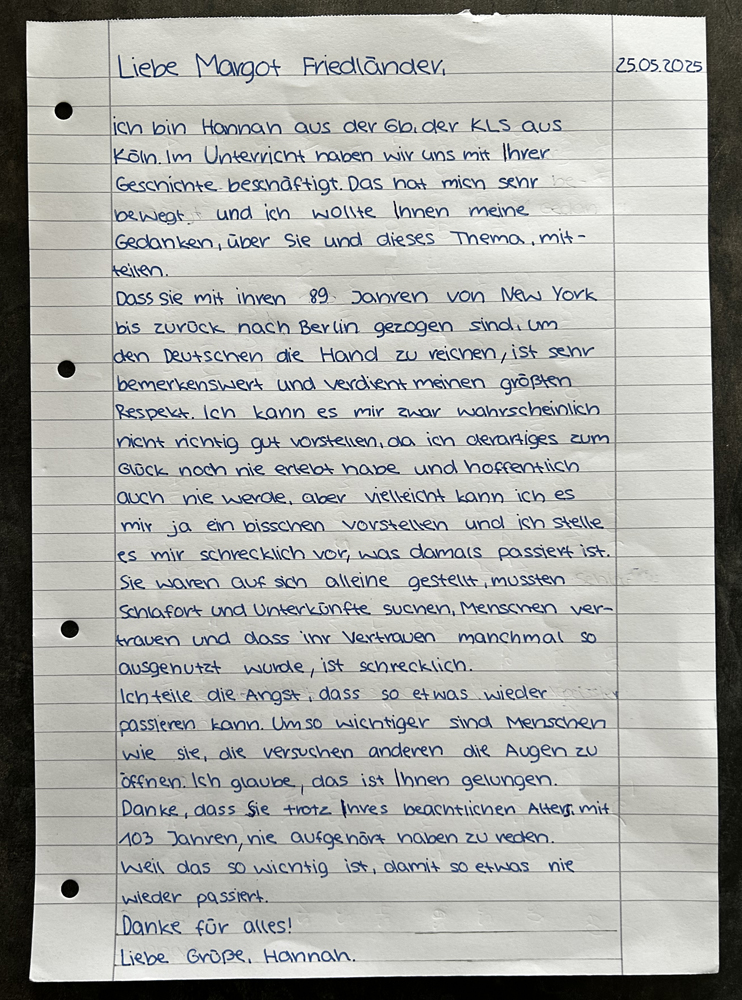 Liebe Margot Friedländer, 25.05.2025
ich bin Hannah aus der 6b, der KLS aus
Köln. Im Unterricht haben wir uns mit Ihrer
Geschichte beschäftigt. Das hat mich sehr
bewegt und ich wollte Innen meine
Gedanken, über Sie und dieses Thema, mit-
teilen.
Dass Sie mit ihren 89 Jahren von New York
bis zurück nach Berlin gezogen sind, um
den Deutschen die Hand zu reichen, ist sehr
bemerkenswert und verdient meinen größten
Respekt. Ich kann es mir zwar wahrscheinlich
nicht richtig gut vorstellen, da ich derartiges zum
Glück noch nie erlebt habe und hoffentlich
auch nie werde, aber vielleicht kann ich es
mir ja ein bisschen vorstellen und ich stelle
es mir schrecklich vor, was damals passiert ist.
Sie waren auf sich alleine gestellt, mussten
Schlafort und Unterkünfte suchen, Menschen ver-
trauen und dass ihr Vertrauen manchmal so
ausgenutzt wurde, ist schrecklich.
Ich teile die Angst, dass so etwas wieder
passieren kann. Umso wichtiger sind Menschen
wie sie, die versuchen anderen die Augen zu
öffnen. Ich glaube, das ist Ihnen gelungen.
Danke, dass Sie trotz Ihres beachtlichen Alters, mit
103 Jahren, nie aufgehört haben zu reden.
Weil das so wichtig ist, damit so etwas nie
wieder passiert.
Danke für alles!
Liebe Grüße, Hannah.